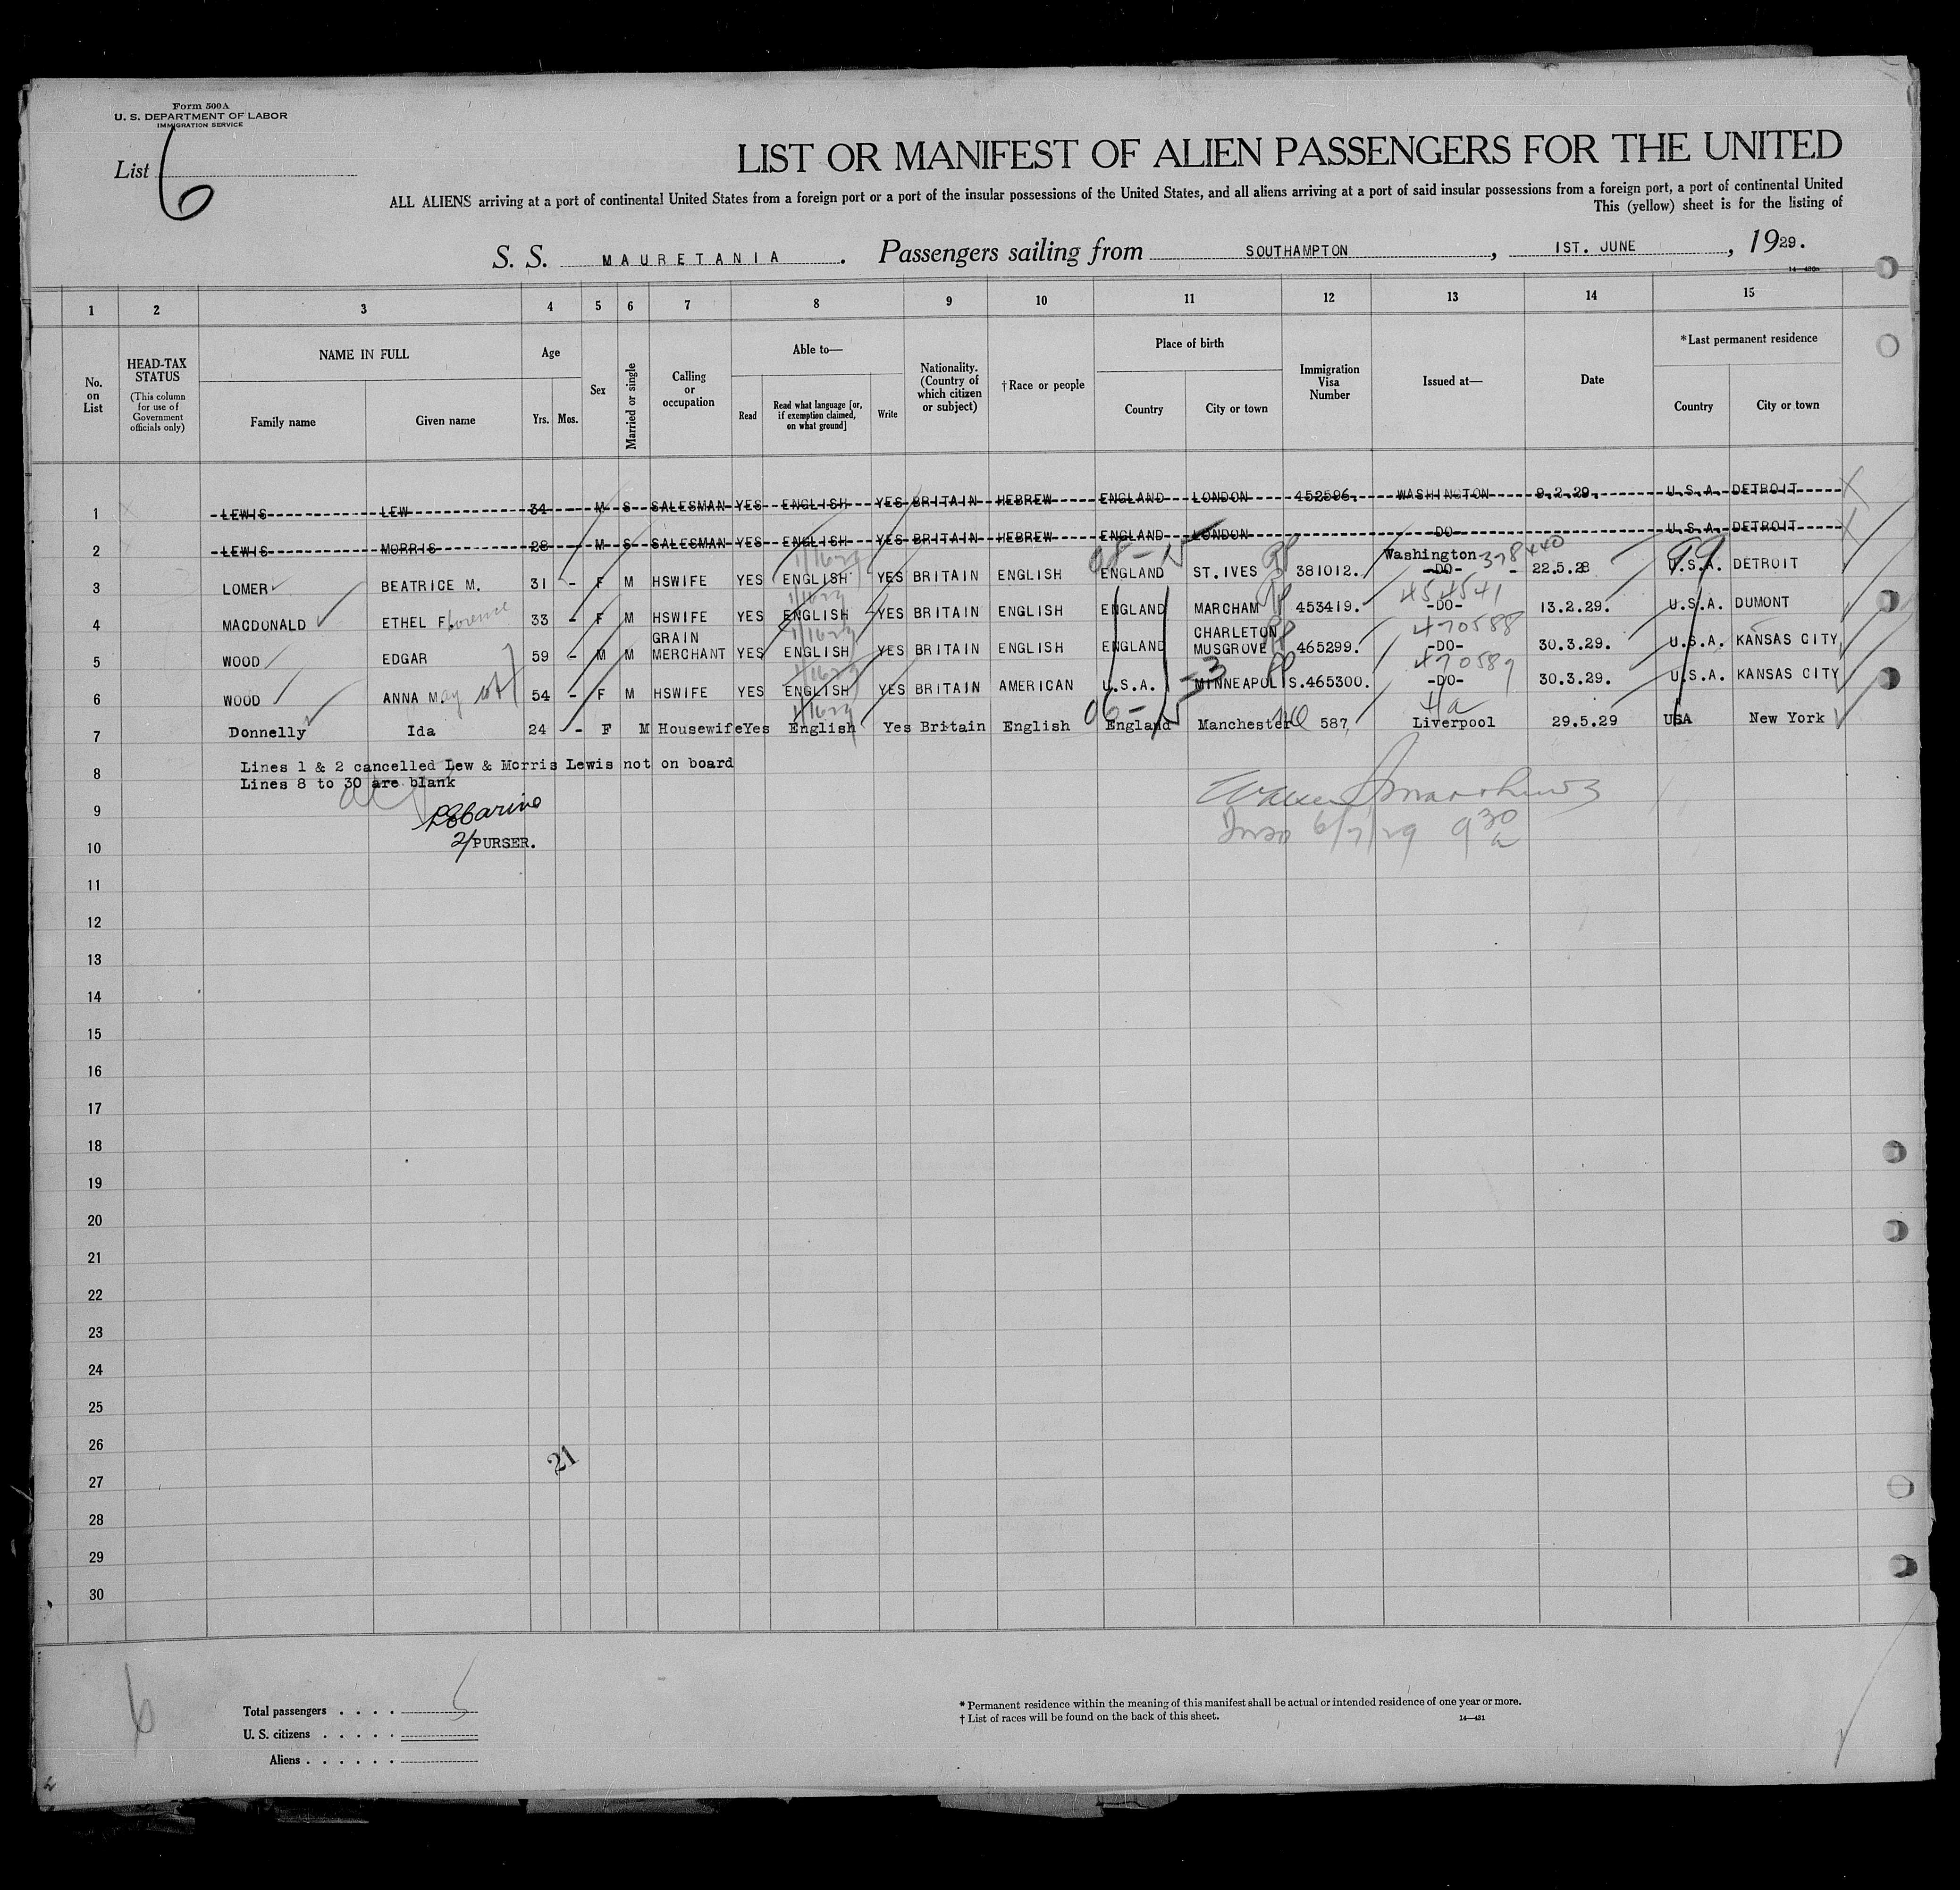 Form 500A
U. S. DEPARTMENT OF LABOR
IMMIGRATION SERVICE
List 6
LIST OR MANIFEST OF ALIEN PASSENGERS FOR THE UNITED
ALL ALIENS arriving at a port of continental United States from a foreign port or a port of the insular possessions of the United States, and all aliens arriving at a port of said insular possessions from a foreign port, a port of continental United
This (yellow) sheet is for the listing of
S. S. MAURETANIA. Passengers sailing from SOUTHAMPTON, 1ST. JUNE, 1929.
14—430a
1 2 3 4 5 6 7 8 9 10 11 12 13 14 15
No. on List
HEAD-TAX STATUS
(This column for use of Government officials only)
NAME IN FULL
Family name
Given name
Age
Yrs. Mos.
Sex
Married or single
Calling or occupation
Able to—
Read
Read what language [or, if exemption claimed, on what ground]
Write
Nationality. (Country of which citizen or subject)
† Race or people
Place of birth
Country
City or town
Immigration Visa Number
Issued at—
Date
*Last permanent residence
Country
City or town
1 LEWIS LEW 34 - M S SALESMAN YES ENGLISH YES BRITAIN HEBREW ENGLAND LONDON 452596. WASHINGTON 9.2.29. U.S.A. DETROIT X
2 LEWIS MORRIS 28 - M S SALESMAN YES ENGLISH YES BRITAIN HEBREW ENGLAND LONDON -DO- U.S.A. DETROIT X
Washington 378440
3 LOMER BEATRICE M. 31 - F M HSWIFE YES ENGLISH YES BRITAIN ENGLISH ENGLAND ST.IVES 381012. -DO- 22.5.28 U.S.A. DETROIT
454541
4 MACDONALD ETHEL Florence 33 - F M HSWIFE YES ENGLISH YES BRITAIN ENGLISH ENGLAND MARCHAM 453419. -DO- 13.2.29. U.S.A. DUMONT
470588
5 WOOD EDGAR 59 - M M GRAIN MERCHANT YES ENGLISH YES BRITAIN ENGLISH ENGLAND CHARLETON MUSGROVE 465299. -DO- 30.3.29. U.S.A. KANSAS CITY
470589
6 WOOD ANNA May 54 - F M HSWIFE YES ENGLISH YES BRITAIN AMERICAN U.S.A. MINNEAPOLIS. 465300. -DO- 30.3.29. U.S.A. KANSAS CITY
7 Donnelly Ida 24 - F M Housewife Yes English Yes Britain English England Manchester 587, Liverpool 29.5.29 USA New York
8 Lines 1 & 2 cancelled Lew & Morris Lewis not on board
Lines 8 to 30 are blank
9
2/PURSER.
6/7/29 9 30
10
11
12
13
14
15
16
17
18
19
20
21
22
23
24
25
26
21
27
28
29
30
6
Total passengers . . . . 5
U. S. citizens . . . . .
Aliens . . . . . .
* Permanent residence within the meaning of this manifest shall be actual or intended residence of one year or more.
† List of races will be found on the back of this sheet.
14—431